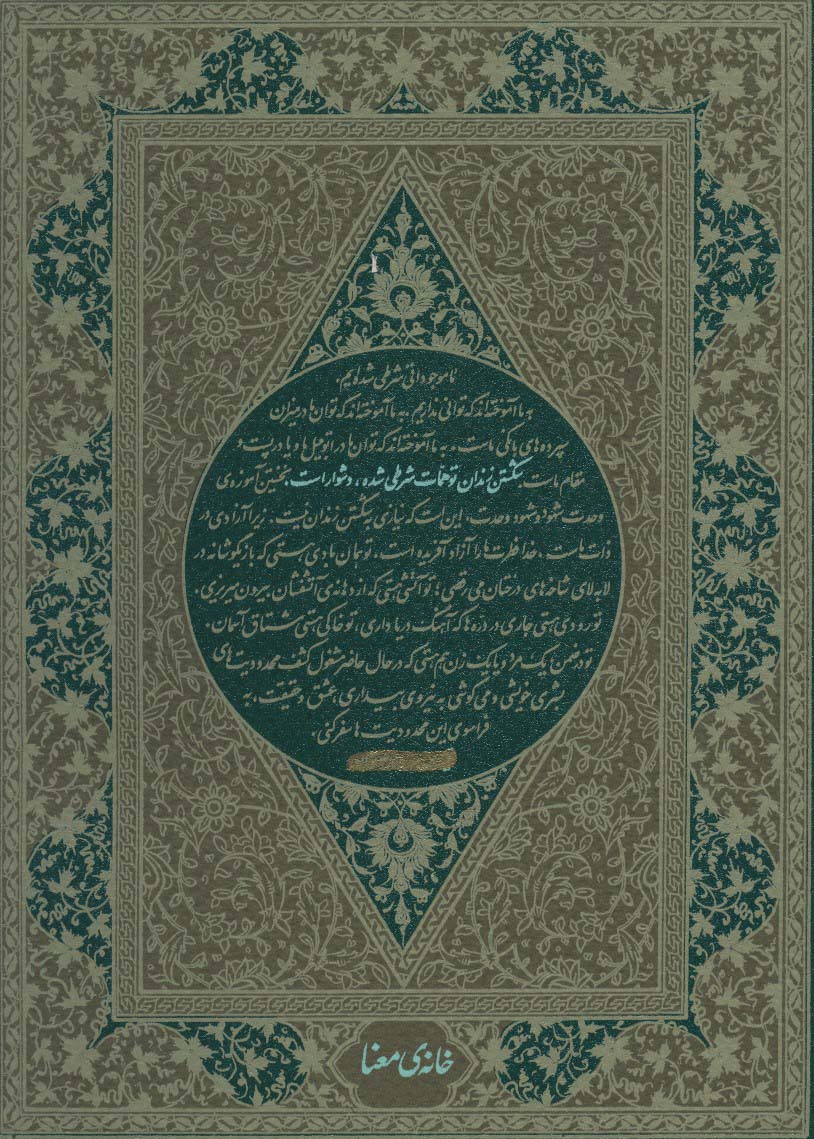 ما موجوداتی شرطی شده‌ایم.
به ما آموخته‌اند که توانی نداریم، به ما آموخته‌اند که توان ما در میزان
سپرده‌های بانکی ماست، به ما آموخته‌اند که توان ما در اتومبیل ما و یا در پست و
مقام ماست. شکستن زندان توهمات شرطی شده، دشوار است، نخستین آموزه‌ی
وحدت شهود و شهود وحدت، این است که نیازی به شکستن زندان نیست. زیرا آزادی در
ذات ماست، خدا فطرت ما را آزاد آفریده است، تو همان بادی هستی که بازیگوشانه در
لابه‌لای شاخه‌های درختان می‌رقصی؛ تو آتشی هستی که از دهانه‌ی آتشفشان بیرون میریزی،
تو رودی هستی جاری در دره‌ها که آهنگ دریا داری، تو خاکی هستی مشتاق آسمان،
تو در ضمن یک مرد و یا یک زن هم هستی که در حال حاضر مشغول کشف محدودیت‌های
بشری خویشی و می‌کوشی به نیروی بیداری، عشق و حقیقت، به
فراسوی این محدودیت‌ها سفر کنی.
خانه‌ی معنا